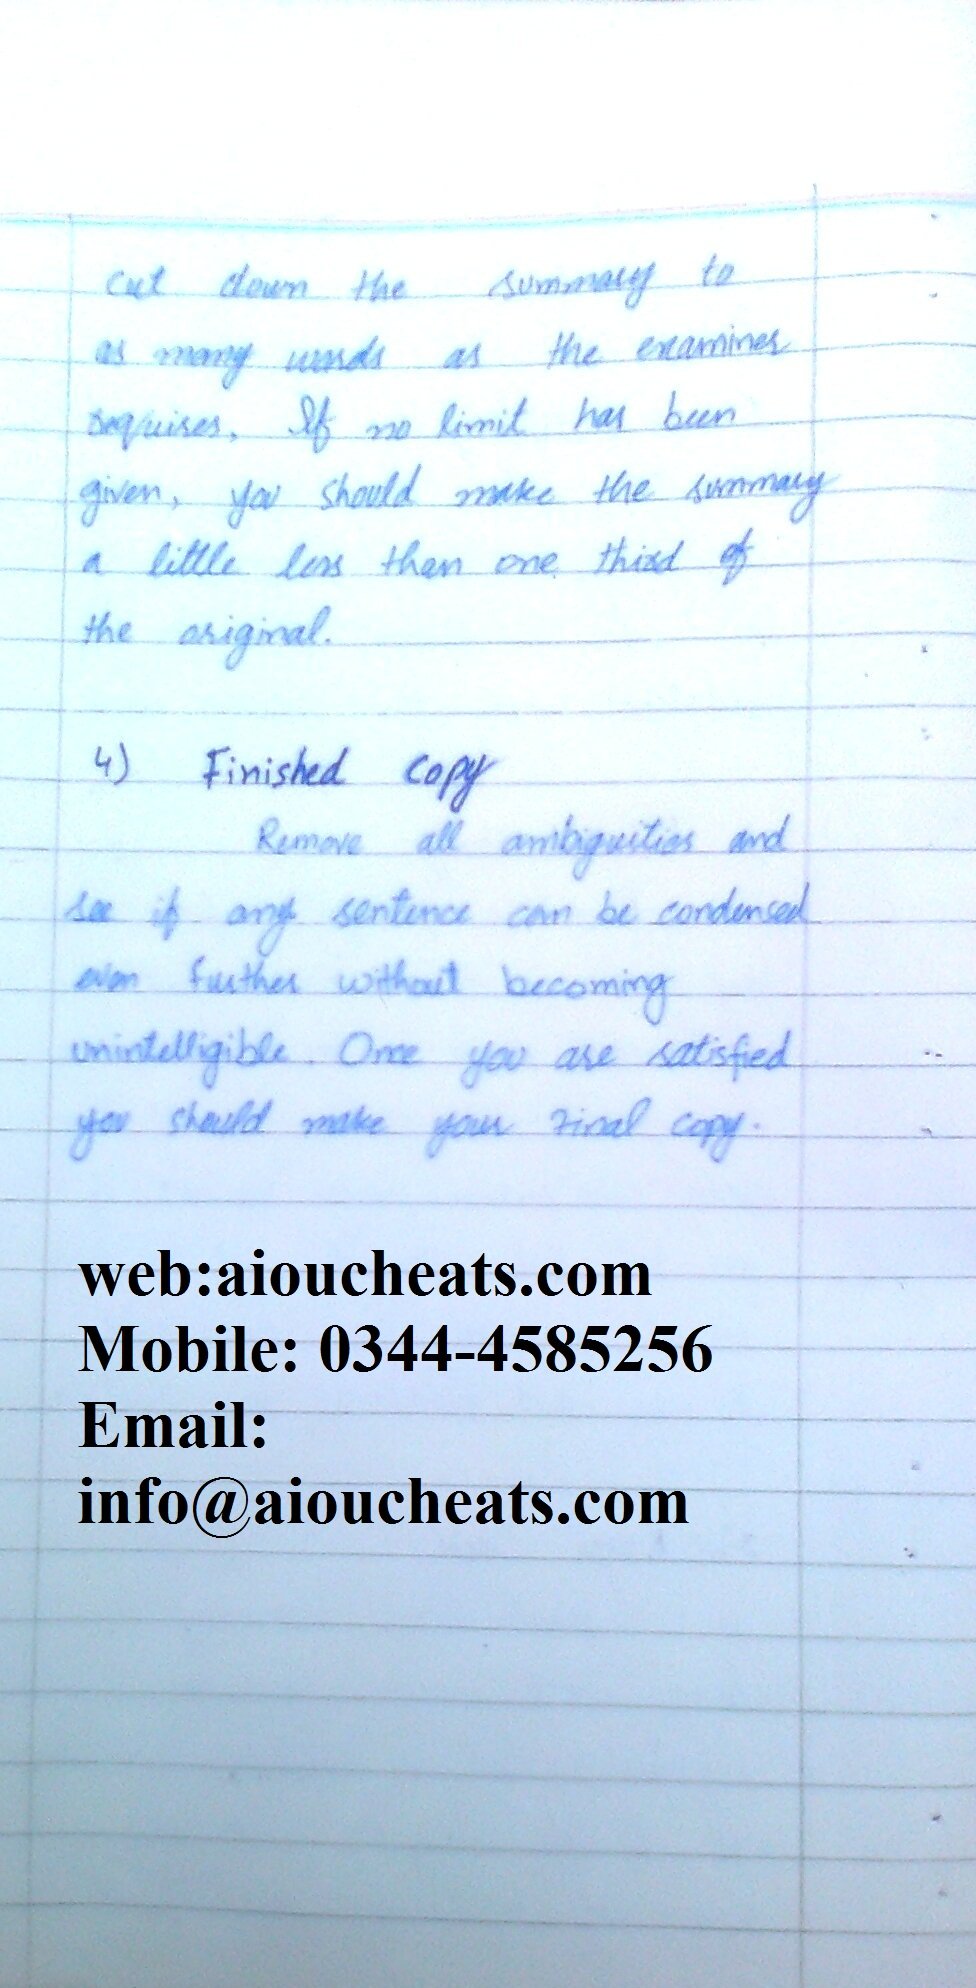 cut down the summary to
as many words as the examiner
requires. If no limit has been
given, you should make the summary
a little less than one third of
the original.
4) Finished Copy
Remove all ambiguities and
see if any sentence can be condensed
even further without becoming
unintelligible. Once you are satisfied
you should make your final copy.
web:aioucheats.com
Mobile: 0344-4585256
Email:
info@aioucheats.com